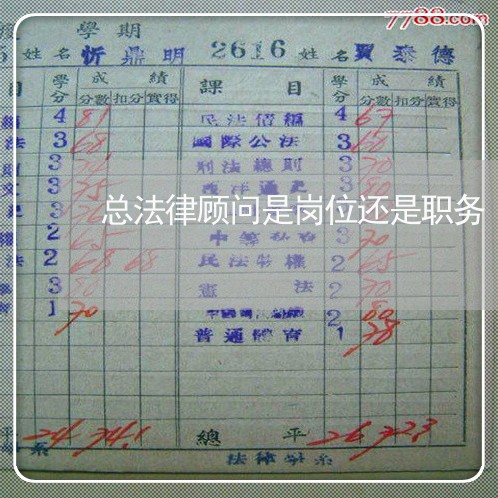 7788.com
學期
姓名 忻鼎明 2616 姓名 賈泰德
目 學分 成績 課目 學分 成績
分數 扣分 實得 分數 扣分 實得
4 81 民法債編 4 67
法 3 68 國際公法 3 60
3 刑法總則 3 70
3 75 西洋通史 3 80
总法律顾问是岗位还是职务
2 65 3 70
法 2 68 68 民法物權 2 65
3 80 憲法 2 70
1 70 2 80
普通體育 1 78
平 24 74.1 總平 26 72.3
系 法律學系